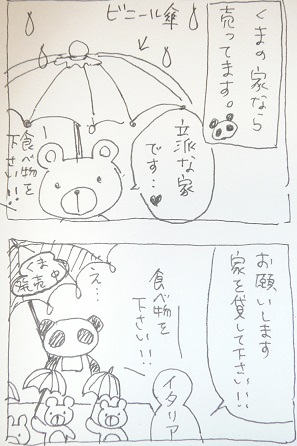 くまの家なら
売ってます。
ビニール傘
立派な家
です…♥
食べ物を
下さい!!
お願いします
家を貸して下さい!!
食べ物を
下さい!!
イタリア
え…
くま
販売中